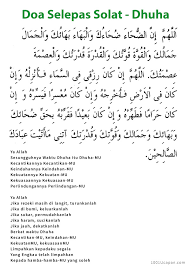 Doa Selepas Solat - Dhuha
اَللّٰهُمَّ اِنَّ الضُّحَآءَ ضُحَاءُكَ وَالْبَهَاءَ بَهَائُكَ وَالْجَمَالَ
جَمَالُكَ وَالْقُوَّةَ قُوَّتُكَ وَالْقُدْرَةَ قُدْرَتُكَ وَالْعِصْمَةَ
عِصْمَتُكَ. اَللّٰهُمَّ اِنْ كَانَ رِزْقِى فِى السَّمَآءِ فَأَنْزِلْهُ وَاِنْ
كَانَ فِى اْلاَرْضِ فَأَخْرِجْهُ وَاِنْ كَانَ مُعَسَّرًا فَيَسِّرْهُ وَاِنْ
كَانَ حَرَامًا فَطَهِّرْهُ وَاِنْ كَانَ بَعِيْدًا فَقَرِّبْهُ بِحَقِّ ضُحَائِكَ
وَبَهَائِكَ وَجَمَالِكَ وَقُوَّتِكَ وَقُدْرَتِكَ آتِنِى مَآأَتَيْتَ عِبَادَكَ
الصَّالِحِيْنَ.
Ya Allah
Sesungguhnya Waktu Dhuha itu Dhuha-MU
Kecantikannya Kecantikan-MU
Keindahannya Keindahan-MU
Kekuatannya Kekuatan-MU
Kekuasaannya Kekuasaan-MU
Perlindungannya Perlindungan-MU
Ya Allah
Jika rezeki masih di langit, turunkanlah
Jika di bumi, keluarkanlah
Jika sukar, permudahkanlah
Jika haram, sucikanlah
Jika jauh, dekatkanlah
Berkat waktu Dhuha
KecantikanMU, KeindahanMU
KekuatanMU, KekuasaanMU
Limpahkan kepadaku segala
Yang Engkau telah limpahkan
Kepada hamba-hamba-MU yang soleh